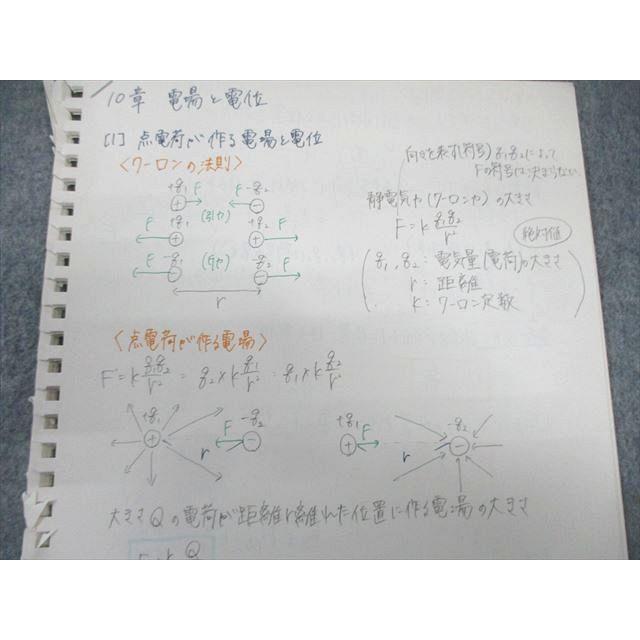 10章 電場と電位
[1] 点電荷が作る電場と電位
〈クーロンの法則〉
+q₁ F F -q₂
(引力)
F +q₁ +q₂ F
(斥力)
F -q₁ -q₂ F
r
向きを表す(符号) q₁q₂によって
Fの符号は決まらない
静電気力(クーロン力)の大きさ
F = k q₁q₂/r²
絶対値
q₁, q₂ : 電気量(電荷)の大きさ
r : 距離
k : クーロン定数
〈点電荷が作る電場〉
F = k q₁q₂/r² = q₂ × k q₁/r² = q₁ × k q₂/r²
+q₁ r F -q₂
+q₁ F r -q₂
大きさQの電荷が距離r離れた位置に作る電場の大きさ